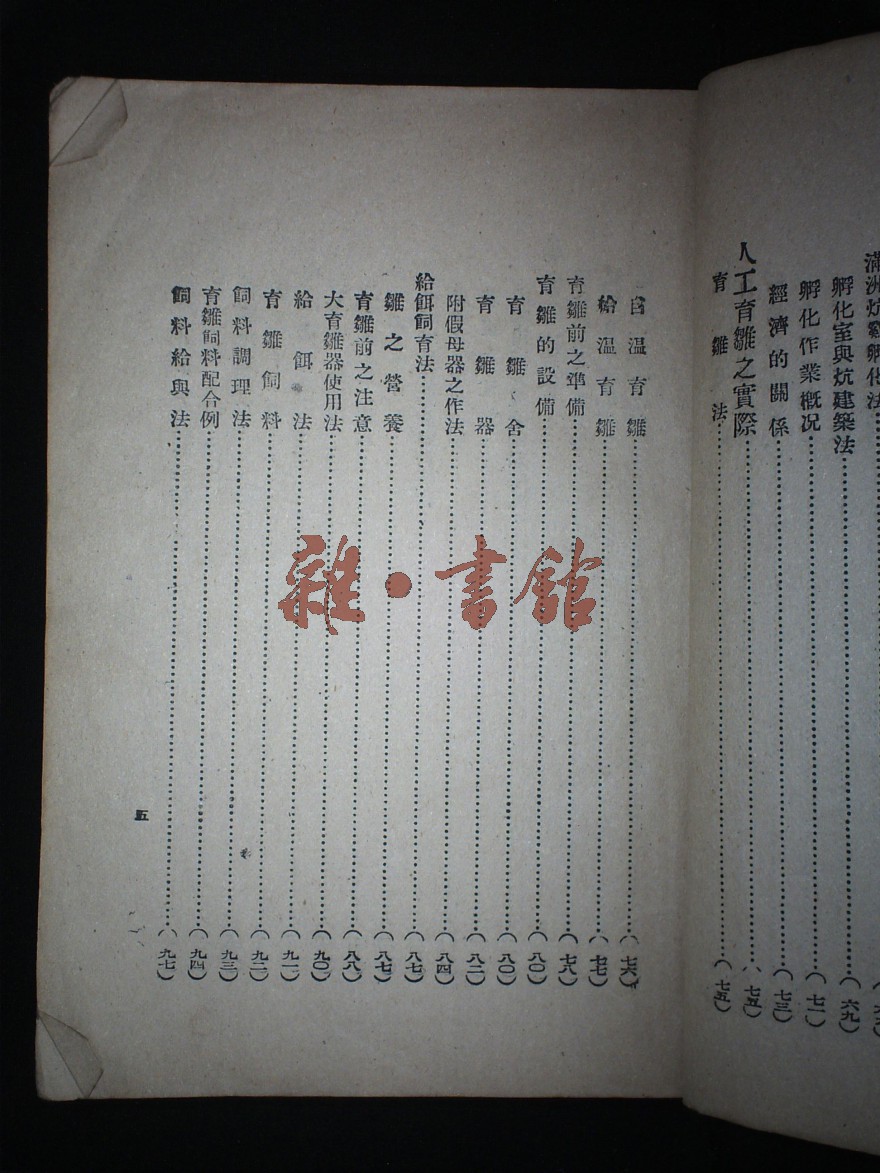 滿洲炕鷄孵化法
孵化室與炕建築法(六九)
孵化作業概况(七一)
經濟的關係(七三)
人工育雛之實際(七五)
育雛法(七五)
自温育雛(七六)
給温育雛(七七)
育雛前之準備(七八)
育雛的設備(八〇)
育雛舍(八〇)
育雛器(八二)
附假母器之作法(八四)
給餌飼育法(八七)
雛之營養(八七)
育雛前之注意(八八)
大育雛器使用法(九〇)
給餌法(九一)
育雛飼料(九二)
飼料調理法(九三)
育雛飼料配合例(九四)
飼料給與法(九七)
五
雜·書館